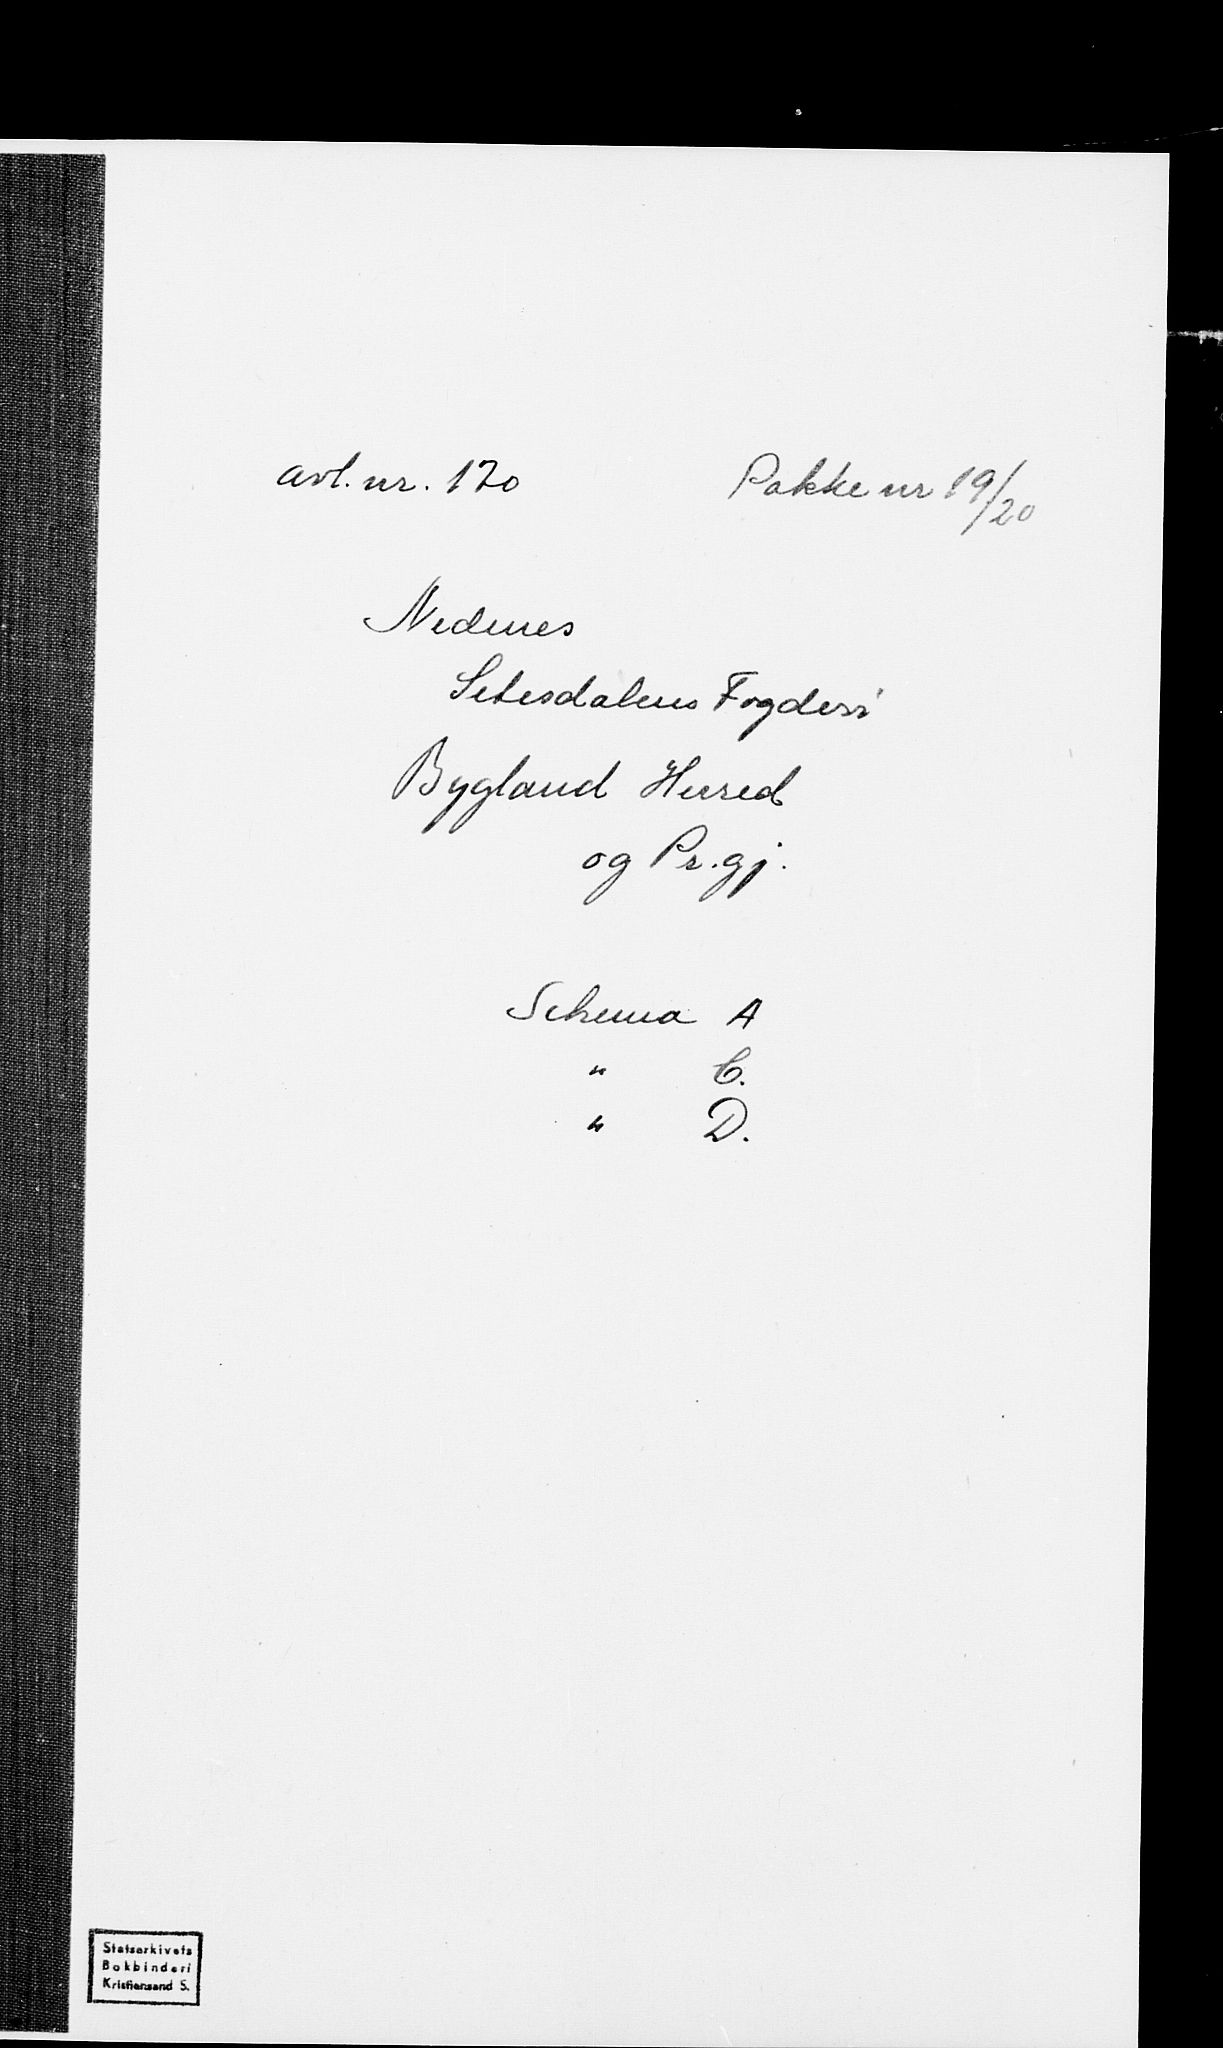 avl. nr. 170
Pakke nr 19/20
Nedenes
Setesdalens Fogderi
Bygland Herred
og Pr.gj.
Schema A
" C.
" D.
Statsarkivets
Bokbinderi
Kristiansand S.